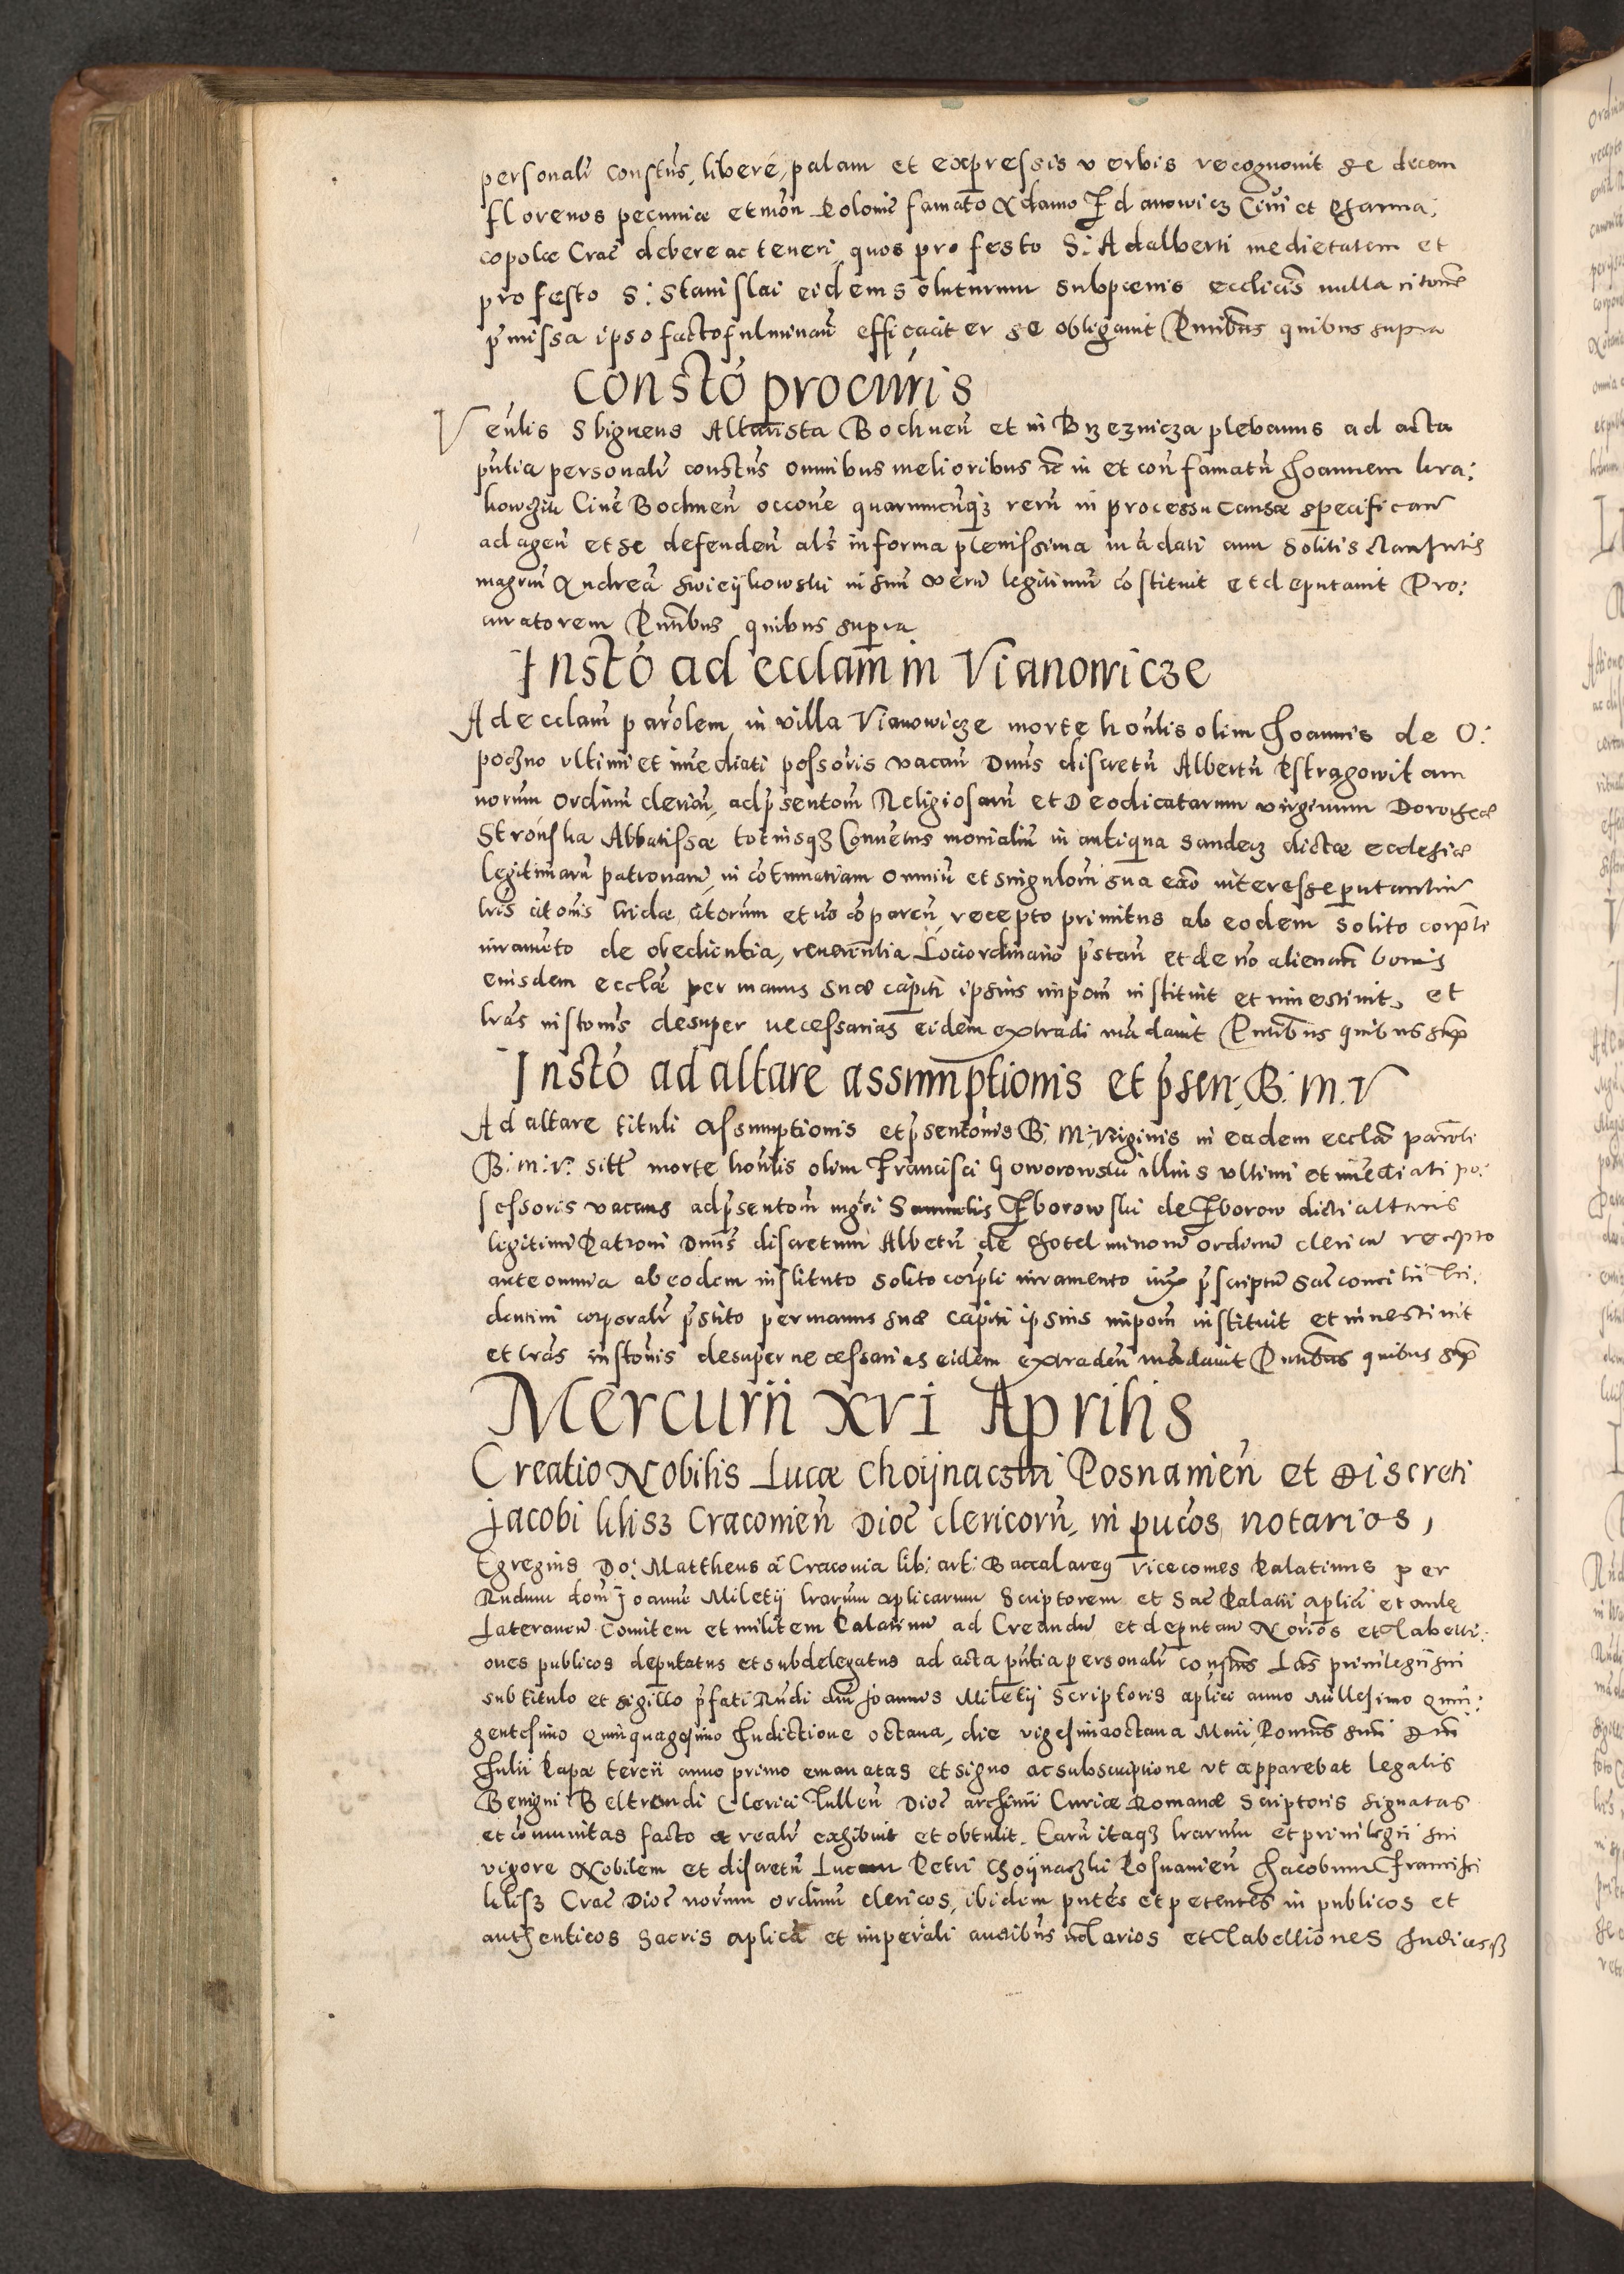 personalr̃ constũs, libere, palam et expressis verbis recognovit se decem
florenos pecuniæ et mõn Poloniẽ famato Adamo Zdanowicz Ciui et Pharma:
copolæ Crac̃ debere ac teneri, quos pro festo S: Adalberti medietatem et
pro festo S: Stanislai eidem soluturum sub pœnis ecclicĩs nulla
p̃missa ipso facto fulminañ efficaciter se obligauit Pñtibus quibus supra
Constó procũris
Veñlis Sbigneus Altarista Bochneñ et in Brzeznicza plebanus ad acta
pñtia personalr̃ constũs omnibus melioribus et in et coñ famatũ Joannem kra:
kowski Civẽ Bochneñ occoñe quarumcunq̃ rerũ in processu causæ specificañ
ad ageñ et se defendeñ als̃ in forma plenissima mãdati cum solitis clausulis
magrũ Andreã Swieijkowski in suũ verũ legitimũ cõstituit et deputauit Pro:
curatorem Pñtibus quibus supra
Instó ad ecclam̃ in Vianowicze
Ad ecclam̃ parõlem in villa Vianowicze morte hoñlis olim Joannis de O:
poczno ultimi et imẽdiati possoris̃ vacañ Dnus̃ discretũ Albertũ Pstragowit am
norum ordinũ clericũ, ad p̃sentoñ Religiosarũ et Deodicatarum virginum Dorotheæ
Stroñska Abbatissæ totiusq̃ Conuẽtus monialiũ in antiqua Sandecz dictæ ecclesiæ
legitimarũ patronarũ, in cotumatiam omniũ et singulorũ sua eaõ interesse putantiũ
lris citonis̃ citorum et nõ cõparẽñ, recepto primitus ab eodem solito corplĩ
iuramẽto de obedientia, reuerẽntia Loci ordinario p̃stañ et de nõ alienañ bonis
eiusdem ecclæ̃ per manus suæ capiti ipsius impoñ instituit et inuestiuit, et
lras̃ instonis̃ desuper necessarias eidem extradi mãdauit Pñtibus quibus sup̃
Instó ad altare assumptionis et p̃sen: B. M. V
Ad altare tituli Assumptionis et p̃sentonis̃ B: M: Virginis in eadem eccla parõli
B: m: v: sitũ morte hoñlis olim Francisci Goworowski illius ultimi et imẽdiati po:
sessoris vacans ad p̃sentoñ mgri Samuelis Zborowski de Zborow dicti altaris
legitimi Patroni Dnus̃ discretum Albertũ de Chotel minorũ ordinũ clericũ recepto
ante omnia ab eodem instituto solito corpli iuramento iux p̃scriptũ Sac̃ concilii Tri:
dentini corporalr̃ p̃stito per manus suæ capiti ipsius impoñ instituit et inuestiuit
et lras̃ instonis̃ desuper necessarias eidem extradeñ mãdauit Pñtibus quibus sup̃
Mercurii XVI Aprilis
Creatio Nobilis Lucæ Choijnaczki Posnanieñ et Discreti
Jacobi kilisz Cracovieñ Dioc̃ clericorũ, in pucõs notarios,
Egregius Do: Mattheus a Cracouia lib: art: Baccalareus Vicecomes Palatinus per
Rudum dom̃ Joannẽ Miletij lrarum aplicarum Scriptorem et Sac̃ Palatii aplici et aulę
Lateraneñ Comitem et militem Palatinũ ad Creandũ et deputañ Norios̃ et Tabelli:
ones publicos deputatus et subdelegatus ad acta pñtia personalr̃ constũs Lras̃ priuilegii sui
sub titulo et sigillo p̃fati Rudi dñi Joannis Miletij Scriptoris aplici anno Millesimo quin:
gentesimo quinquagesimo Indictione octaua, die vigesima octaua Maii, Pontũs Smi Dñi
Julii Papæ tercii anno primo emanatas et signo ac subscriptione ut apparebat legalis
Benigni Beltrandi Clerici Tulleñ Dioc̃ archiuii Curiæ Romanæ Scriptoris signatas
et cõmunitas facto et realr̃ exhibuit et obtulit. Earũ itaq̃ lrarum et priuilegii sui
vigore Nobilem et discretũ Lucam Petri Choijnaczki Posnanieñ Jacobum Francisci
kilisz Crac̃ Dioc̃ norum ordinũ clericos, ibidem pñtes et petentes in publicos et
authenticos Sacris aplicã et imperiali auctibus notarios et Tabelliones Judicesq̃